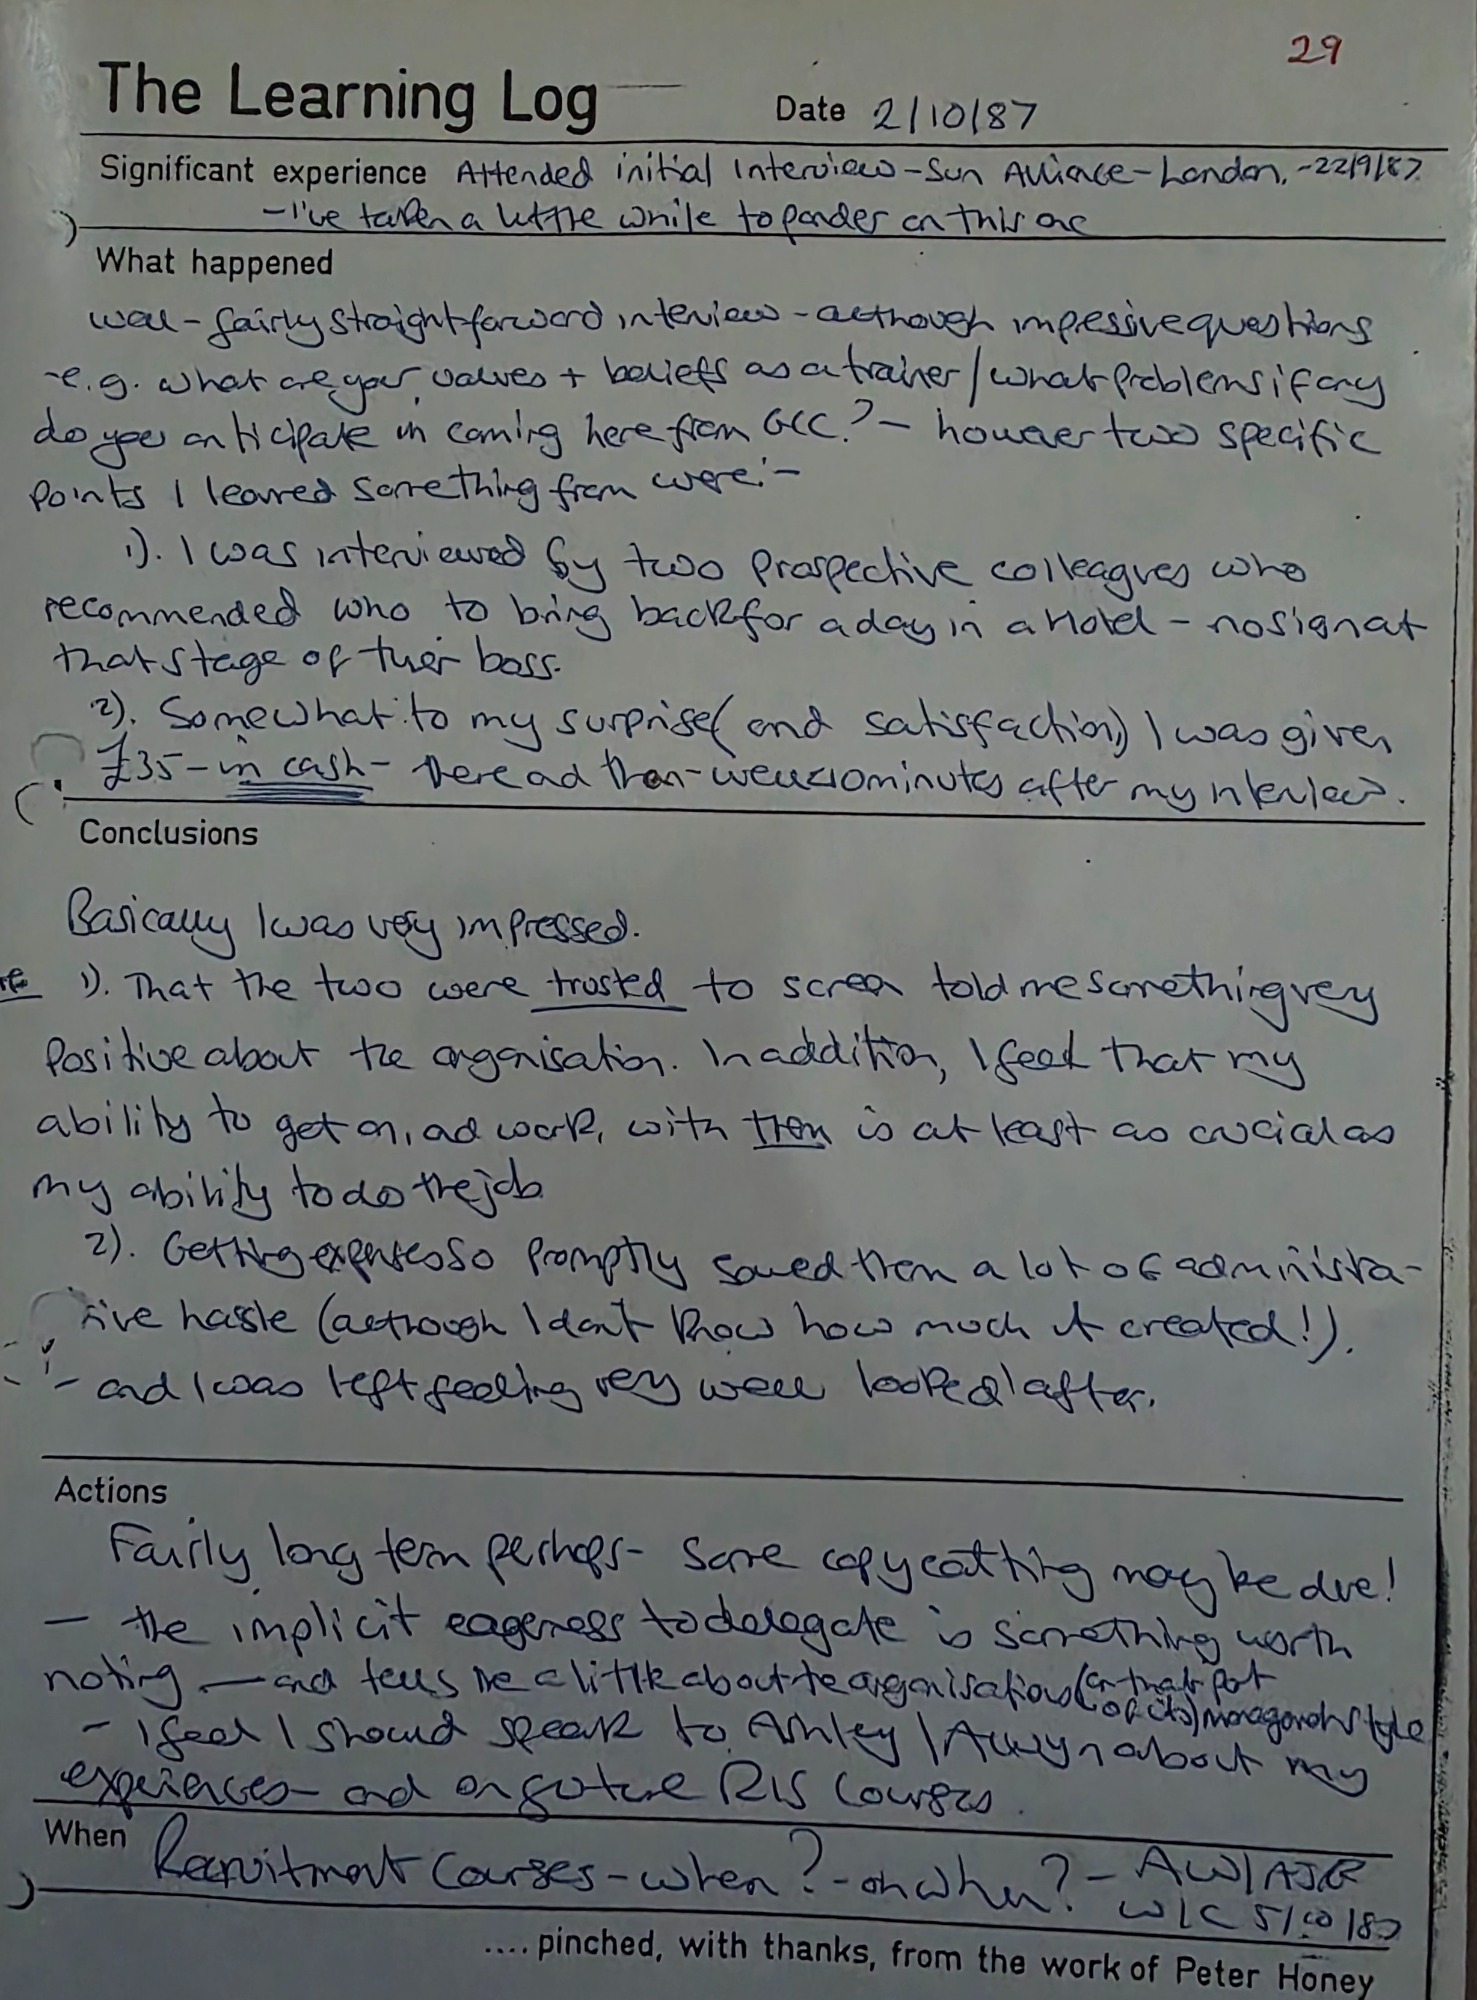 29
The Learning Log
Date 2/10/87
Significant experience Attended initial Interview - Sun Alliance - London. - 22/9/87
- I've taken a little while to ponder on this one
What happened
Well - fairly straightforward interview - although impressive questions
- e.g. what are your values + beliefs as a trainer / what problems if any
do you anticipate in coming here from GCC? - however two specific
points I learned something from were:-
1). I was interviewed by two prospective colleagues who
recommended who to bring back for a day in a Hotel - no sign at
that stage of their boss.
2). Somewhat to my surprise (and satisfaction) I was given
£35 - in cash - there and then - well < 10 minutes after my interview.
Conclusions
Basically I was very impressed.
re 1). That the two were trusted to screen told me something very
positive about the organisation. In addition, I feel that my
ability to get on, and work, with them is at least as crucial as
my ability to do the job
2). Getting expenses so promptly saved them a lot of administra-
tive hassle (although I don't know how much it created!).
- and I was left feeling very well looked after.
Actions
Fairly long term perhaps - some copycatting may be due!
- the implicit eagerness to delegate is something worth
noting - and tells me a little about the organisations (or that part
of its) management style
- I feel I should speak to Ashley / Alwyn about my
experiences - and on future RIS Courses.
When Recruitment Courses - when? - oh when? - AW/AJR
W/C 5/10/87
.... pinched, with thanks, from the work of Peter Honey